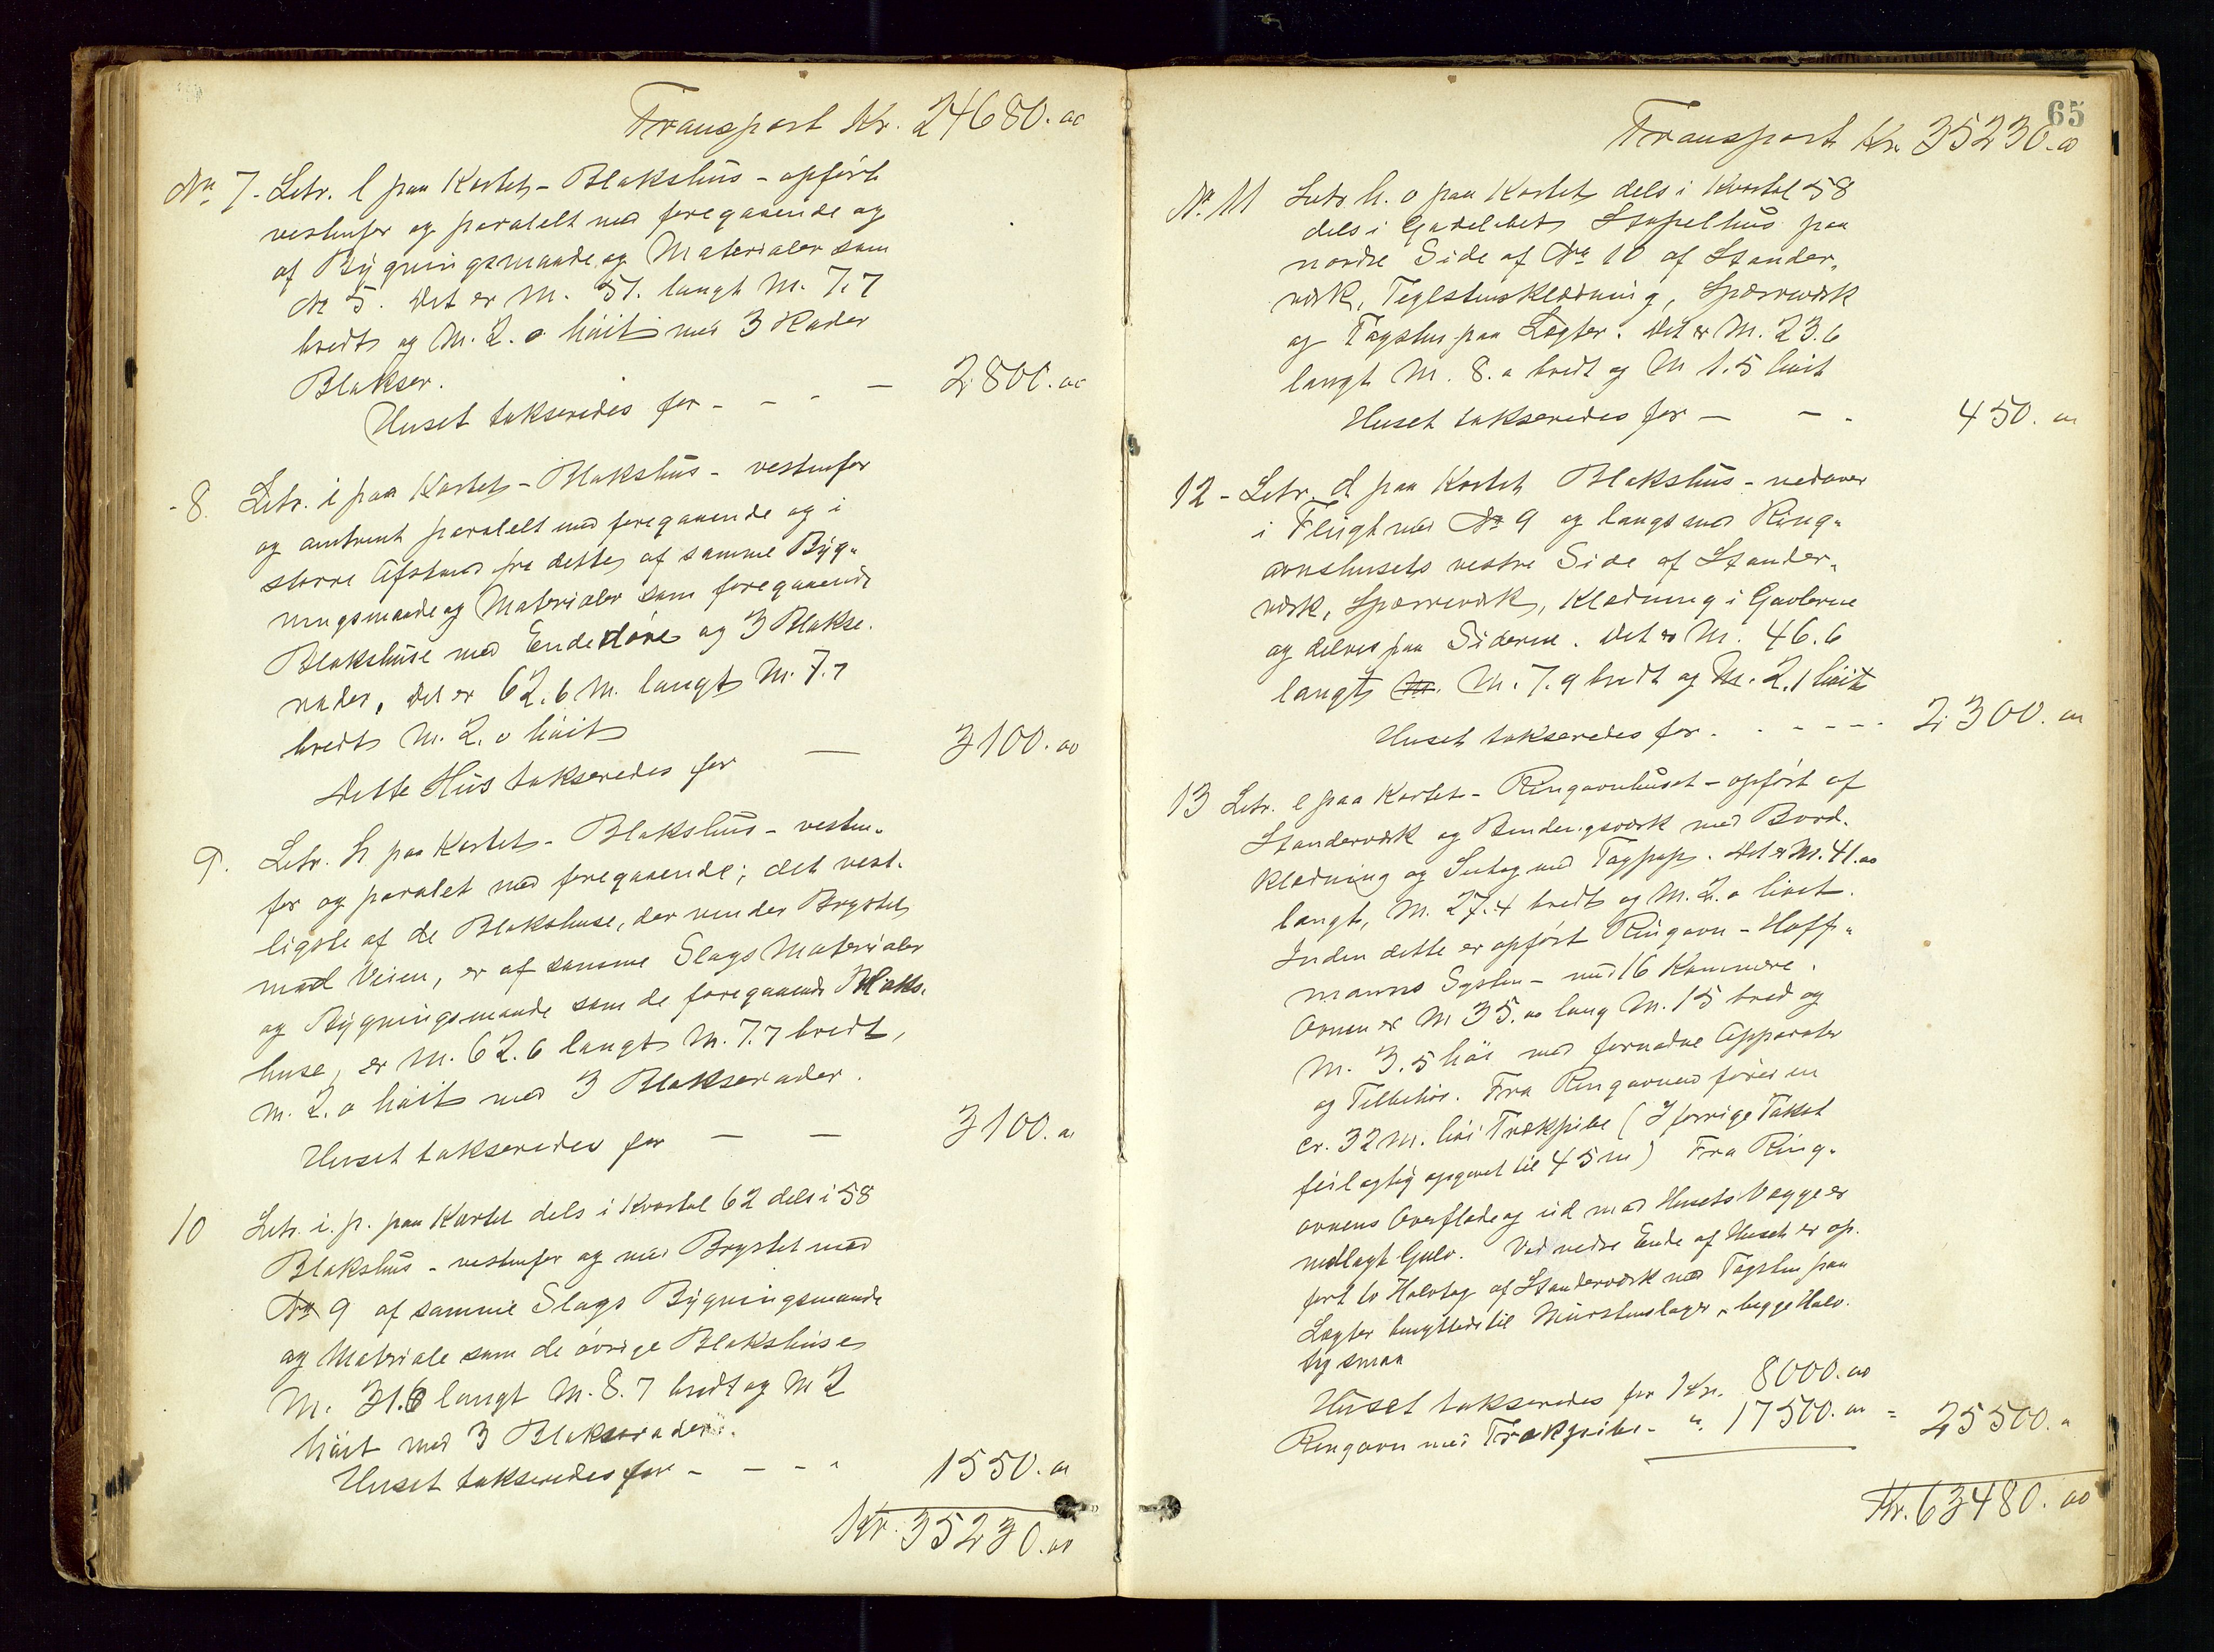 Transport Kr. 24680.00
No 7. Letr. l paa Kartet - Blakshus - opført
vestenfor og paralelt med foregaaende og
af Bygningsmaade og Materialer som
No 5. Det er M. 51. langt M. 7.7
bredt og M. 2.0 høit med 3 Rader
Blakser.
Huset takseredes for - - - — 2800.00
- 8. Letr. i paa Kartet - Blakshus - vestenfor
og omtrent paralelt med foregaaende og i
større Afstand fra dette, af samme Byg-
ningsmaade og Materialer som foregaaende
Blakshuse med Endedøre og 3 Blakse-
rader. Det er 62.6 M. langt M. 7.7
bredt M. 2.0 høit
Dette Hus takseredes for — 3100.00
9. Letr. h paa Kartet - Blakshus - vesten-
for og paralet med foregaaende; det vest-
ligste af de Blakshuse, der vender Brystet
mod Veien, er af samme Slags Materialer
og Bygningsmaade som de foregaaende Blaks-
huse, er M. 62.6 langt M. 7.7 bredt,
M. 2.0 høit med 3 Blakserader.
Huset takseredes for — — 3100.00
10 Letr. i. p. paa Kartet dels i Kvartal 62 dels i 58
Blakshus - vestenfor og med Brystet mod
No 9 af samme Slags Bygningsmaade
og Materiale som de øvrige Blakshuse
M. 31.6 langt M. 8.7 bredt og M 2
høit med 3 Blakserader.
Huset takseredes for - - - - 1550.00
Kr. 35230.00
65
Transport Kr. 35230.00
No. 11 Letr. h. o paa Kartet dels i Kvartal 58
dels i Gadeløbet Stapelhus paa
nordre Side af No 10 af Stander-
værk, Teglstensklædning, Spærreværk
og Tagsten paa Lægter. Det er M. 23.6
langt M. 8.0 bredt og M 1.5 høit
Huset takseredes for — - - 450.00
12 - Letr. d paa Kartet Blakshus - nedover
i Flugt med No 9 og langs med Ring-
ovnshusets vestre Side af Stander-
værk, Spærreværk, Klædning i Gavlerne
og delvis paa Siderne. Det er M. 46.6
langt M. M. 7.9 bredt og M. 2.1 høit
Huset takseredes for. - - - - - 2300.00
13 Letr. e paa Kartet - Ringovnhuset - opført af
Standerværk og Bindingsværk med Bord-
klædning og Sutag med Tagpap. Det er M. 41.00
langt, M. 27.4 bredt og M. 2.0 høit.
Inden dette er opført Ringovn - Hoff-
manns System - med 16 Kammere.
Ovnen er M 35.00 lang M. 15 bred og
M. 3.5 høi med fornødne Apparater
og Tilbehør. Fra Ringovnen fører en
cr. 32 M. høi Trækpibe (I forrige Takst
feilagtig opgivet til 45 M) Fra Ring-
ovnens Overflade og ud mod Husets Vægge er
nedlagt Gulv. Ved nedre Ende af Huset er op-
ført to Halvtag af Standerværk med Tagsten paa
Lægter benyttede til Murstenslager, begge Halv-
tag smaa
Huset takseredes for Kr. 8000.00
Ringovn med Trækpibe - " 17500.00 = 25500.00
Kr. 63480.00